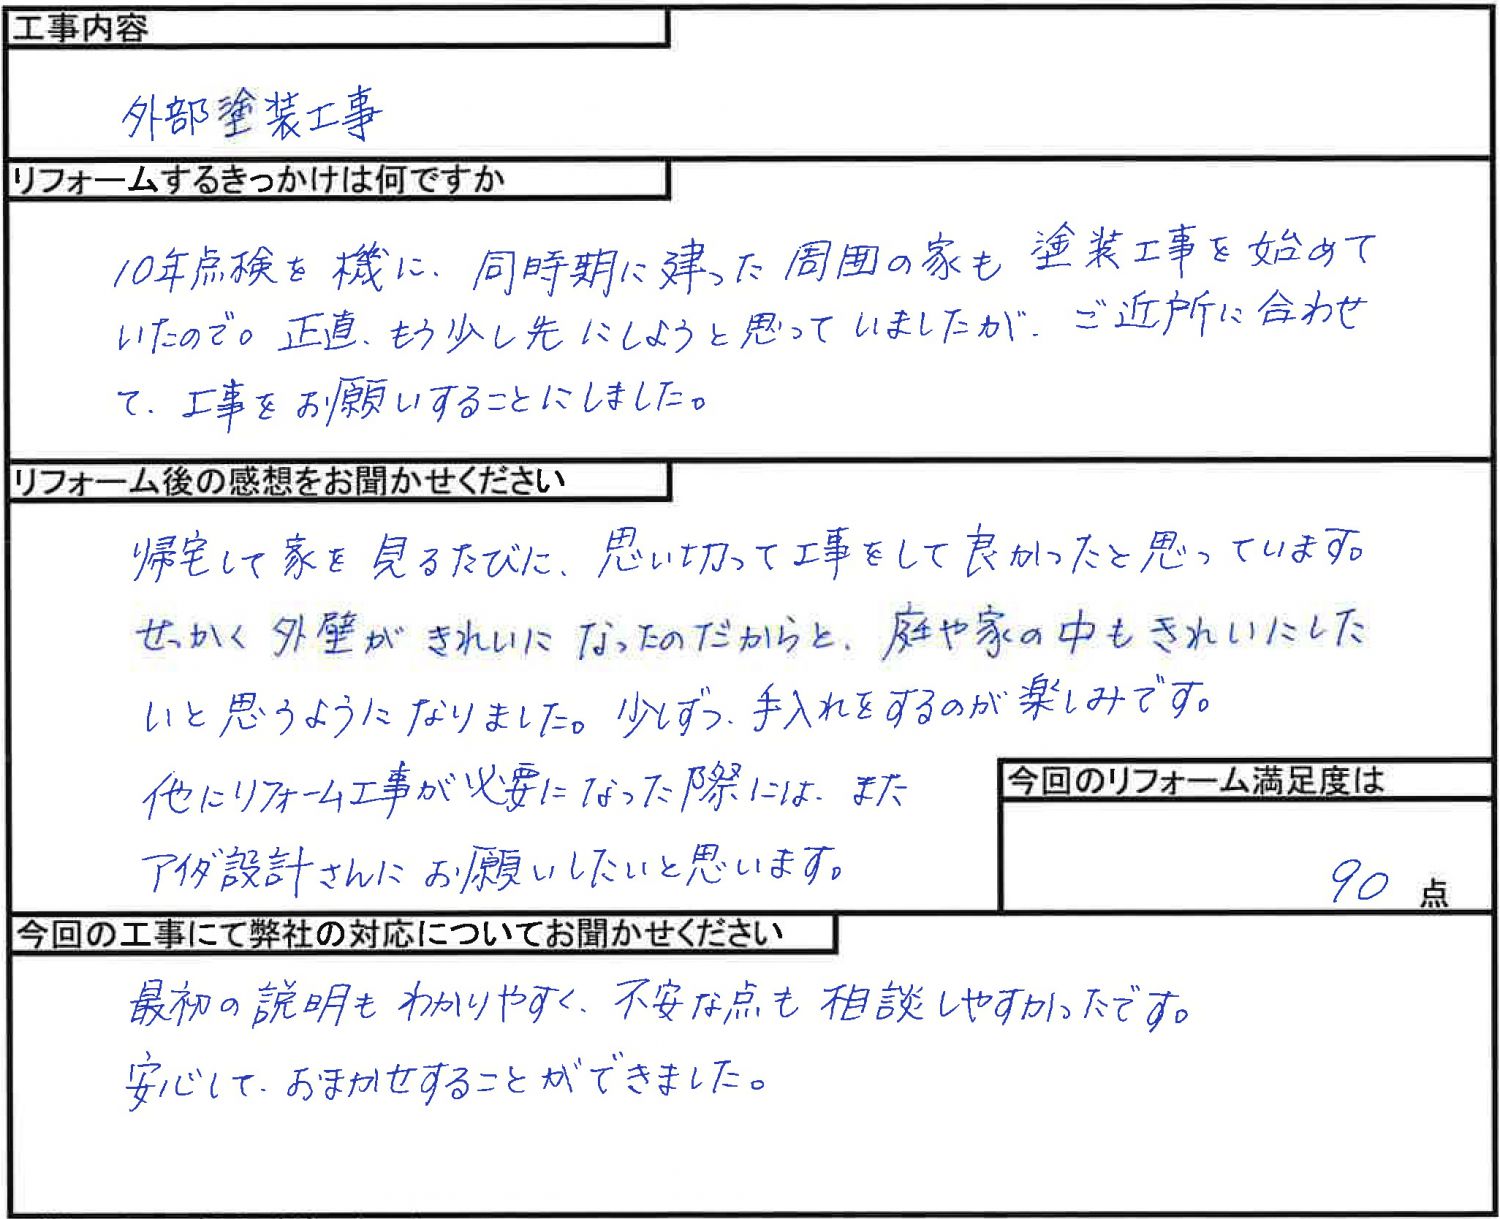 工事内容
外部塗装工事
リフォームするきっかけは何ですか
10年点検を機に、同時期に建った周囲の家も塗装工事を始めて
いたので。正直、もう少し先にしようと思っていましたが、ご近所に合わせ
て、工事をお願いすることにしました。
リフォーム後の感想をお聞かせください
帰宅して家を見るたびに、思い切って工事をして良かったと思っています。
せっかく外壁がきれいになったのだからと、庭や家の中もきれいにした
いと思うようになりました。少しずつ、手入れをするのが楽しみです。
他にリフォーム工事が必要になった際には、また
アイダ設計さんにお願いしたいと思います。
今回のリフォーム満足度は
90 点
今回の工事にて弊社の対応についてお聞かせください
最初の説明もわかりやすく、不安な点も相談しやすかったです。
安心して、おまかせすることができました。